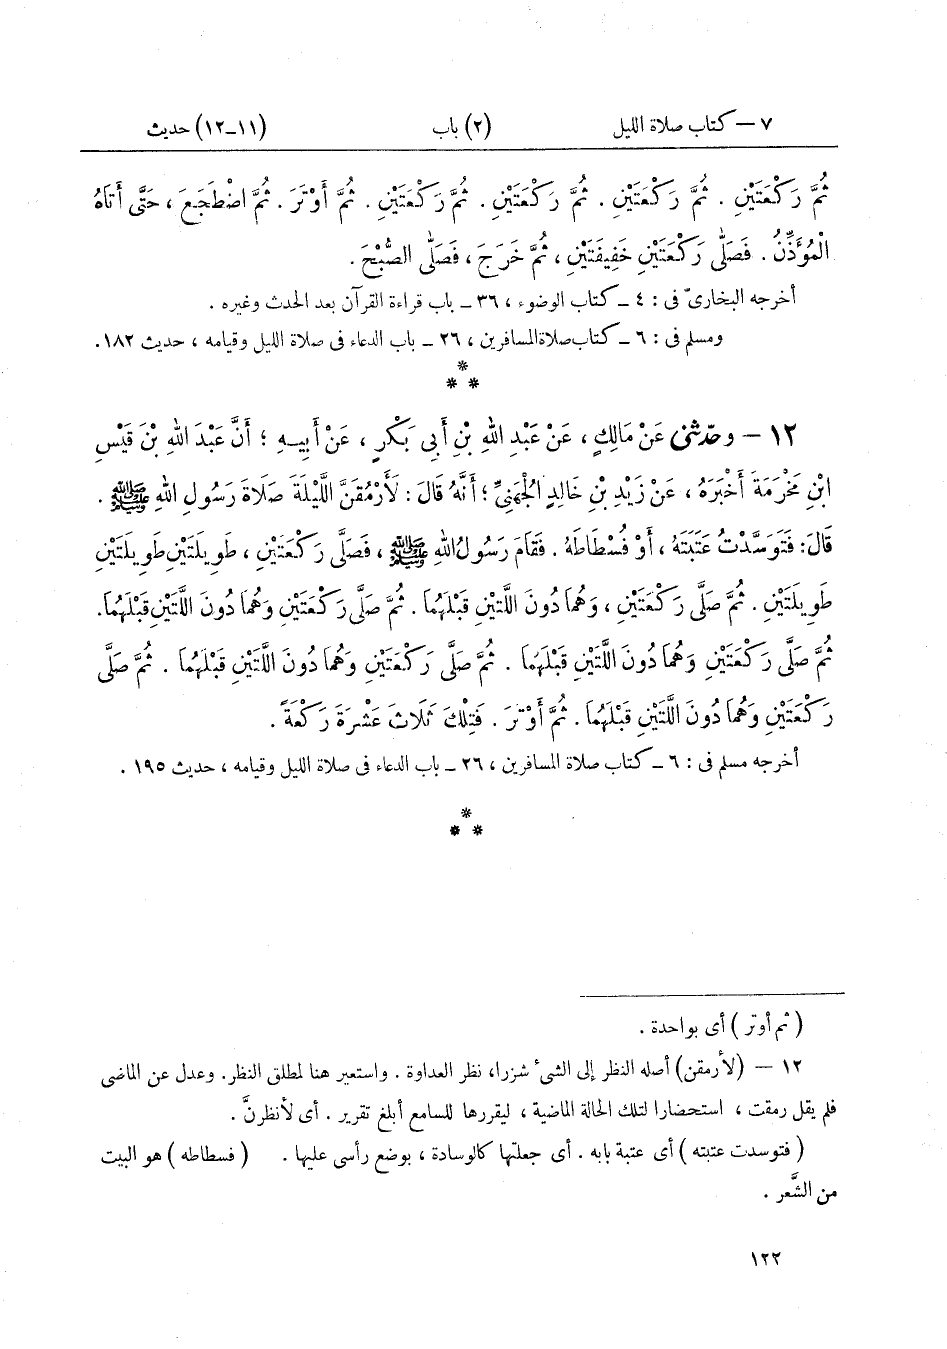 ٧ — كتاب صلاة الليل (٢) باب (١١–١٢) حديث
ثُمَّ رَكْعَتَيْنِ . ثُمَّ رَكْعَتَيْنِ . ثُمَّ رَكْعَتَيْنِ . ثُمَّ رَكْعَتَيْنِ . ثُمَّ أَوْتَرَ . ثُمَّ اضْطَجَعَ ، حَتَّى أَتَاهُ
الْمُؤَذِّنُ . فَصَلَّى رَكْعَتَيْنِ خَفِيفَتَيْنِ ، ثُمَّ خَرَجَ ، فَصَلَّى الصُّبْحَ .
أخرجه البخارىّ فى : ٤ ـ كتاب الوضوء ، ٣٦ ـ باب قراءة القرآن بعد الحدث وغيره .
ومسلم فى : ٦ ـ كتاب صلاة المسافرين ، ٢٦ ـ باب الدعاء فى صلاة الليل وقيامه ، حديث ١٨٢ .
*
* *
١٢ — وحدّثنى عَنْ مَالِكٍ ، عَنْ عَبْدِ اللهِ بْنِ أَبِى بَكْرٍ ، عَنْ أَبِيهِ ؛ أَنَّ عَبْدَ اللهِ بْنَ قَيْسِ
ابْنِ مَخْرَمَةَ أَخْبَرَهُ ، عَنْ زَيْدِ بْنِ خَالِدٍ الْجُهَنِىِّ ؛ أَنَّهُ قَالَ : لَأَرْمُقَنَّ اللَّيْلَةَ صَلَاةَ رَسُولِ اللهِ ﷺ .
قَالَ : فَتَوَسَّدْتُ عَتَبَتَهُ ، أَوْ فُسْطَاطَهُ . فَقَامَ رَسُولُ اللهِ ﷺ ، فَصَلَّى رَكْعَتَيْنِ ، طَوِيلَتَيْنِ طَوِيلَتَيْنِ
طَوِيلَتَيْنِ . ثُمَّ صَلَّى رَكْعَتَيْنِ ، وَهُمَا دُونَ اللَّتَيْنِ قَبْلَهُمَا . ثُمَّ صَلَّى رَكْعَتَيْنِ وَهُمَا دُونَ اللَّتَيْنِ قَبْلَهُمَا .
ثُمَّ صَلَّى رَكْعَتَيْنِ وَهُمَا دُونَ اللَّتَيْنِ قَبْلَهُمَا . ثُمَّ صَلَّى رَكْعَتَيْنِ وَهُمَا دُونَ اللَّتَيْنِ قَبْلَهُمَا . ثُمَّ صَلَّى
رَكْعَتَيْنِ وَهُمَا دُونَ اللَّتَيْنِ قَبْلَهُمَا . ثُمَّ أَوْتَرَ . فَتِلْكَ ثَلَاثَ عَشْرَةَ رَكْعَةً .
أخرجه مسلم فى : ٦ ـ كتاب صلاة المسافرين ، ٢٦ ـ باب الدعاء فى صلاة الليل وقيامه ، حديث ١٩٥ .
*
* *
( ثم أوتر ) أى بواحدة .
١٢ — (لأرمقن) أصله النظر إلى الشىء شزرا، نظر العداوة . واستعير هنا لمطلق النظر. وعدل عن الماضى
فلم يقل رمقت ، استحضارا لتلك الحالة الماضية ، ليقررها للسامع أبلغ تقرير . أى لأنظرنَّ .
( فتوسدت عتبته ) أى عتبة بابه . أى جعلتها كالوسادة ، بوضع رأسى عليها . ( فسطاطه ) هو البيت
من الشَّعر .
١٢٢